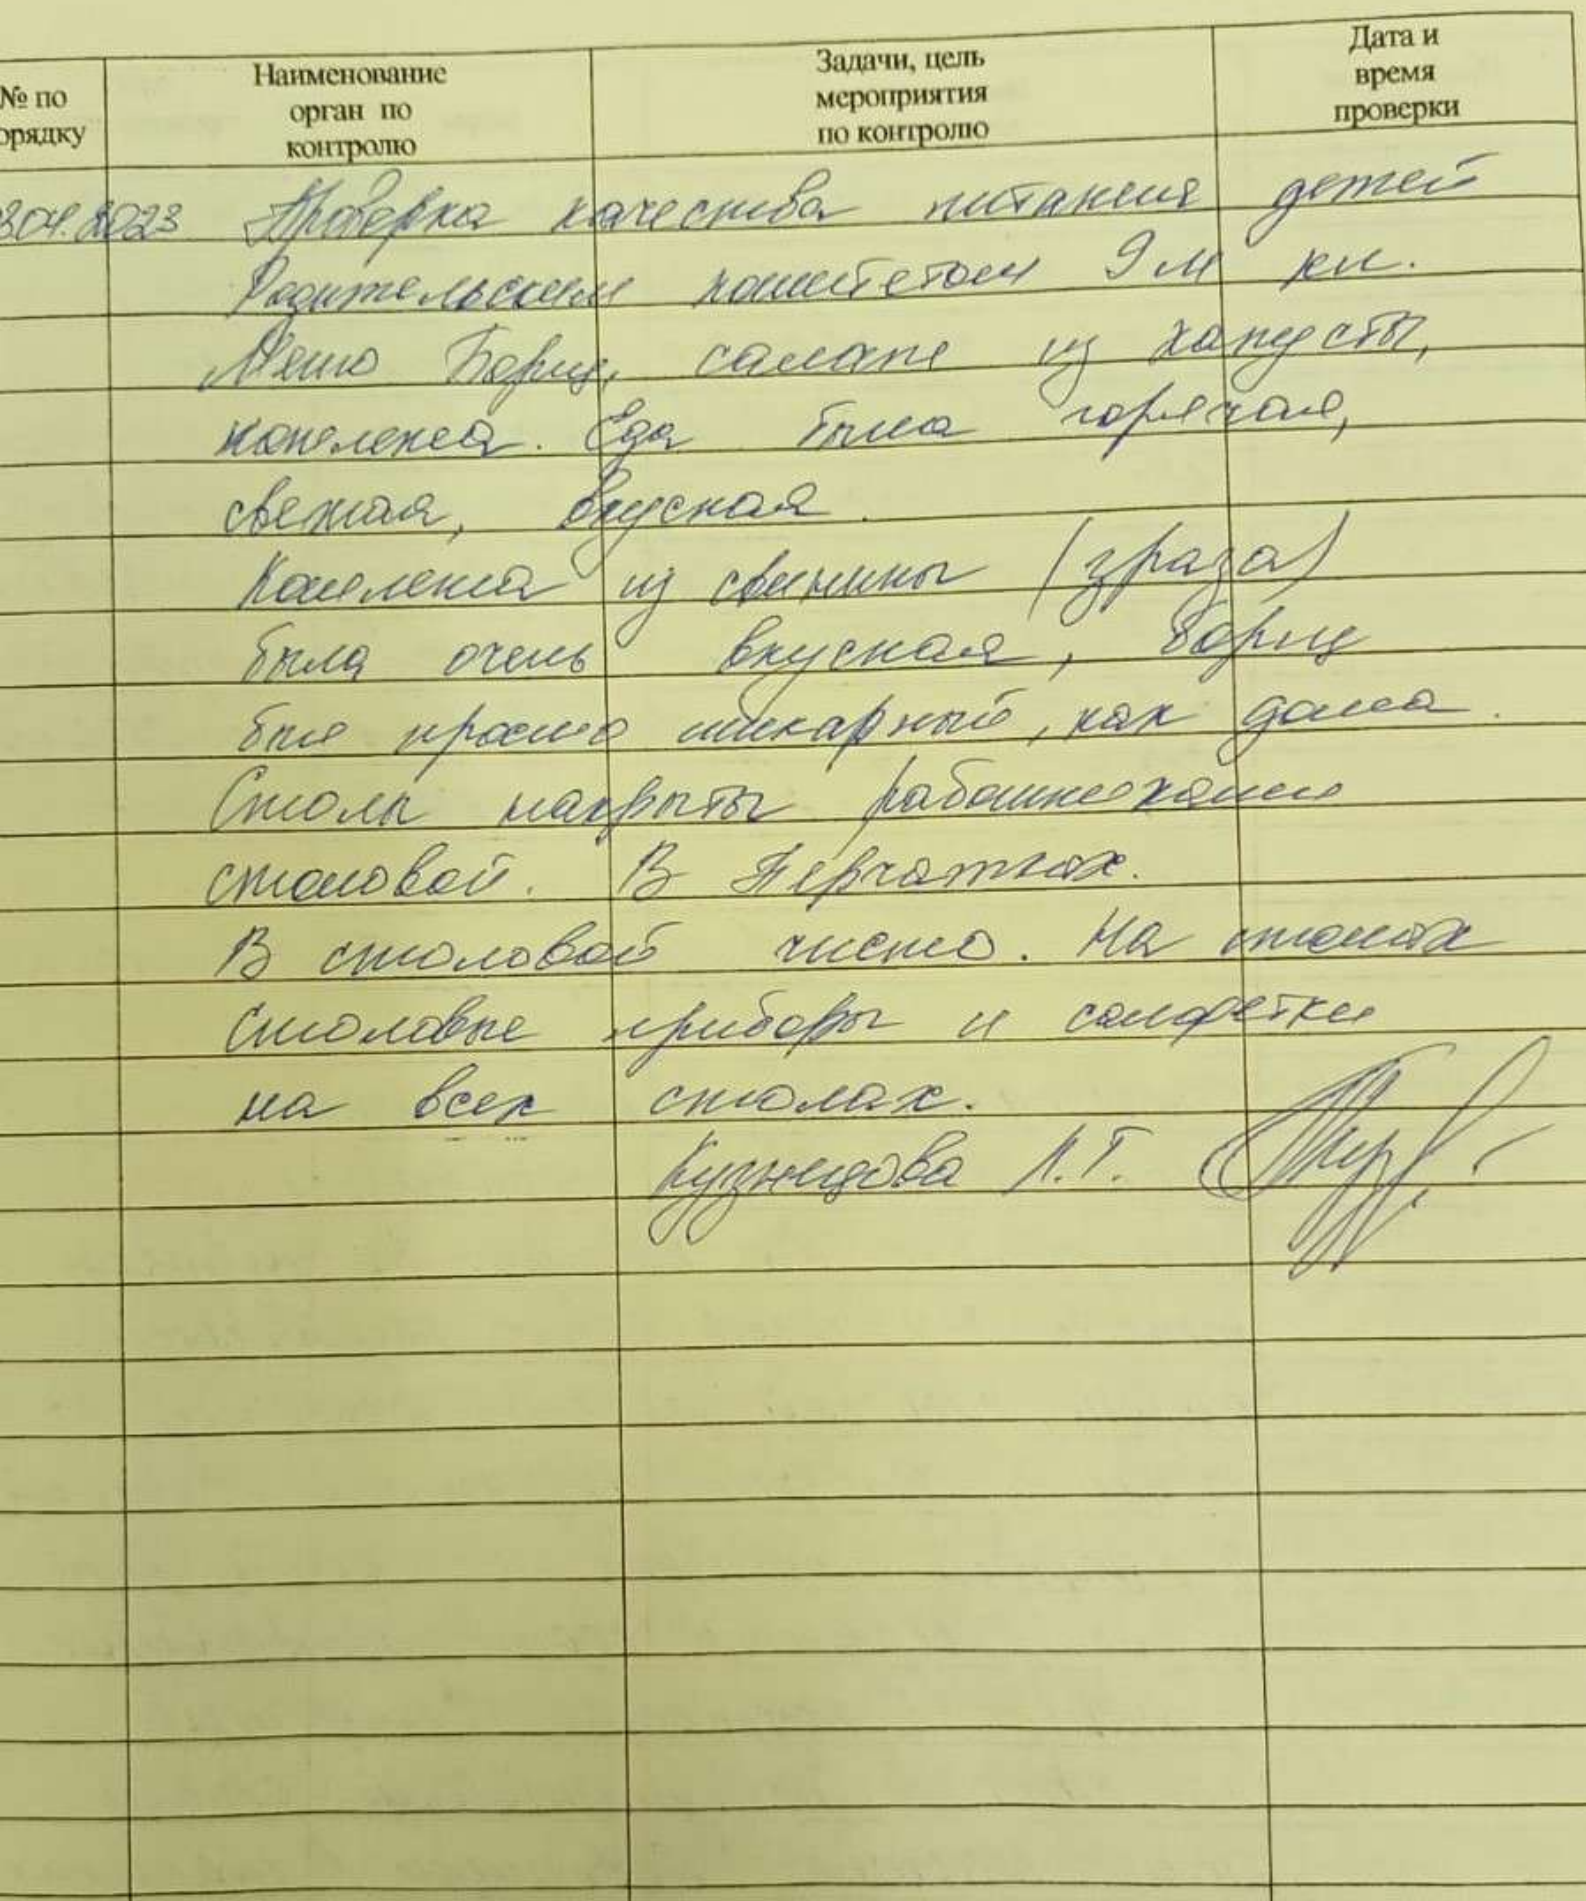 № по орядку
Наименование орган по контролю
Задачи, цель мероприятия по контролю
Дата и время проверки
304.2023 Проверка качества питания детей
Родительским комитетом 9 м кл.
Меню Борщ, салат из капусты,
котлета. Еда была горячая,
свежая, вкусная.
Котлета из свинины (зраза)
была очень вкусная, борщ
был просто шикарный, как дома.
Столы накрыты работниками
столовой. В перчатках.
В столовой чисто. На столах
столовые приборы и салфетки
на всех столах.
Кузнецова Л.Т.